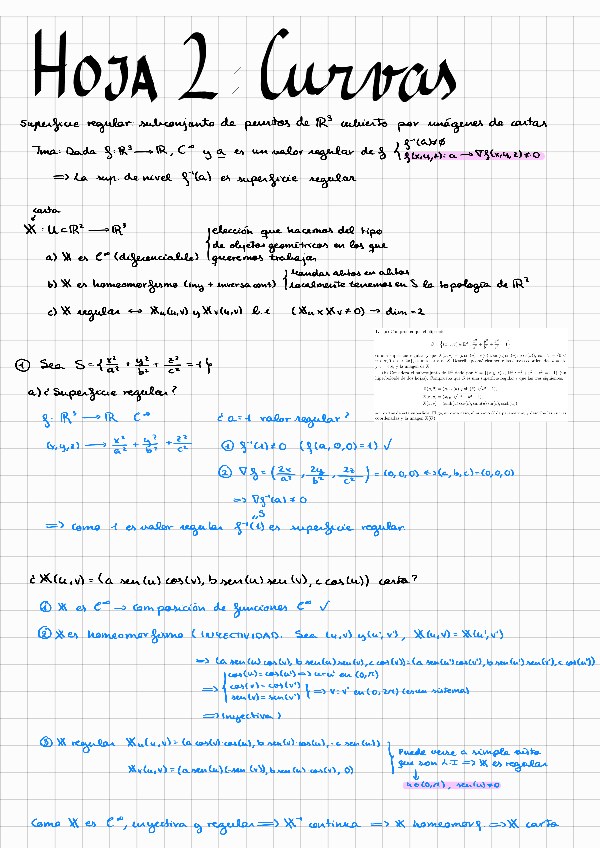 HOJA 2: Curvas
Superficie regular subconjunto de puntos de ℝ³ cubierto por imágenes de cartas
Tma: Dada f: ℝ³ → ℝ, C^∞ y a es un valor regular de f { f⁻¹(a) ≠ ∅
f(x,y,z) = a → ∇f(x,y,z) ≠ 0
=> La sup. de nivel f⁻¹(a) es superficie regular
carta
𝕏 : U ⊂ ℝ² → ℝ³
elección que hacemos del tipo
de objetos geométricos en los que
queremos trabajar
a) 𝕏 es C^∞ (diferenciable)
b) 𝕏 es homeomorfismo (iny + inversa cont)
mandar abtos en abtos
localmente tenemos en S la topología de ℝ²
c) 𝕏 regular ↔ 𝕏u(u,v) y 𝕏v(u,v) l.i (𝕏u × 𝕏v ≠ 0) → dim = 2
① Sea S = { x²/a² + y²/b² + z²/c² = 1 }
a) ¿Superficie regular?
f: ℝ³ → ℝ C^∞
(x,y,z) → x²/a² + y²/b² + z²/c²
¿a=1 valor regular?
① f⁻¹(1) ≠ ∅ (f(a,0,0)=1) ✓
② ∇f = (2x/a², 2y/b², 2z/c²) = (0,0,0) <=> (a,b,c) = (0,0,0)
=> ∇f⁻¹(a) ≠ 0
"S
=> Como 1 es valor regular f⁻¹(1) es superficie regular
¿𝕏(u,v) = (a sen(u) cos(v), b sen(u) sen(v), c cos(u)) carta?
① 𝕏 es C^∞ → composición de funciones C^∞ ✓
② 𝕏 es homeomorfismo (INYECTIVIDAD. Sea (u,v) y (u',v'), 𝕏(u,v) = 𝕏(u',v')
=> (a sen(u) cos(v), b sen(u) sen(v), c cos(u)) = (a sen(u') cos(v'), b sen(u') sen(v'), c cos(u'))
cos(u) = cos(u') => u=u' en (0,π)
=> { cos(v) = cos(v')
sen(v) = sen(v') } => v=v' en (0,2π) (es un sistema)
=> Inyectiva)
③ 𝕏 regular 𝕏u(u,v) = (a cos(v) cos(u), b sen(v) cos(u), -c sen(u))
𝕏v(u,v) = (a sen(u)(-sen(v)), b sen(u) cos(v), 0)
Puede verse a simple vista
que son L I => 𝕏 es regular
u ∈ (0,π), sen(u) ≠ 0
Como 𝕏 es C^∞, inyectiva y regular => 𝕏⁻¹ continua => 𝕏 homeomorf. => 𝕏 carta